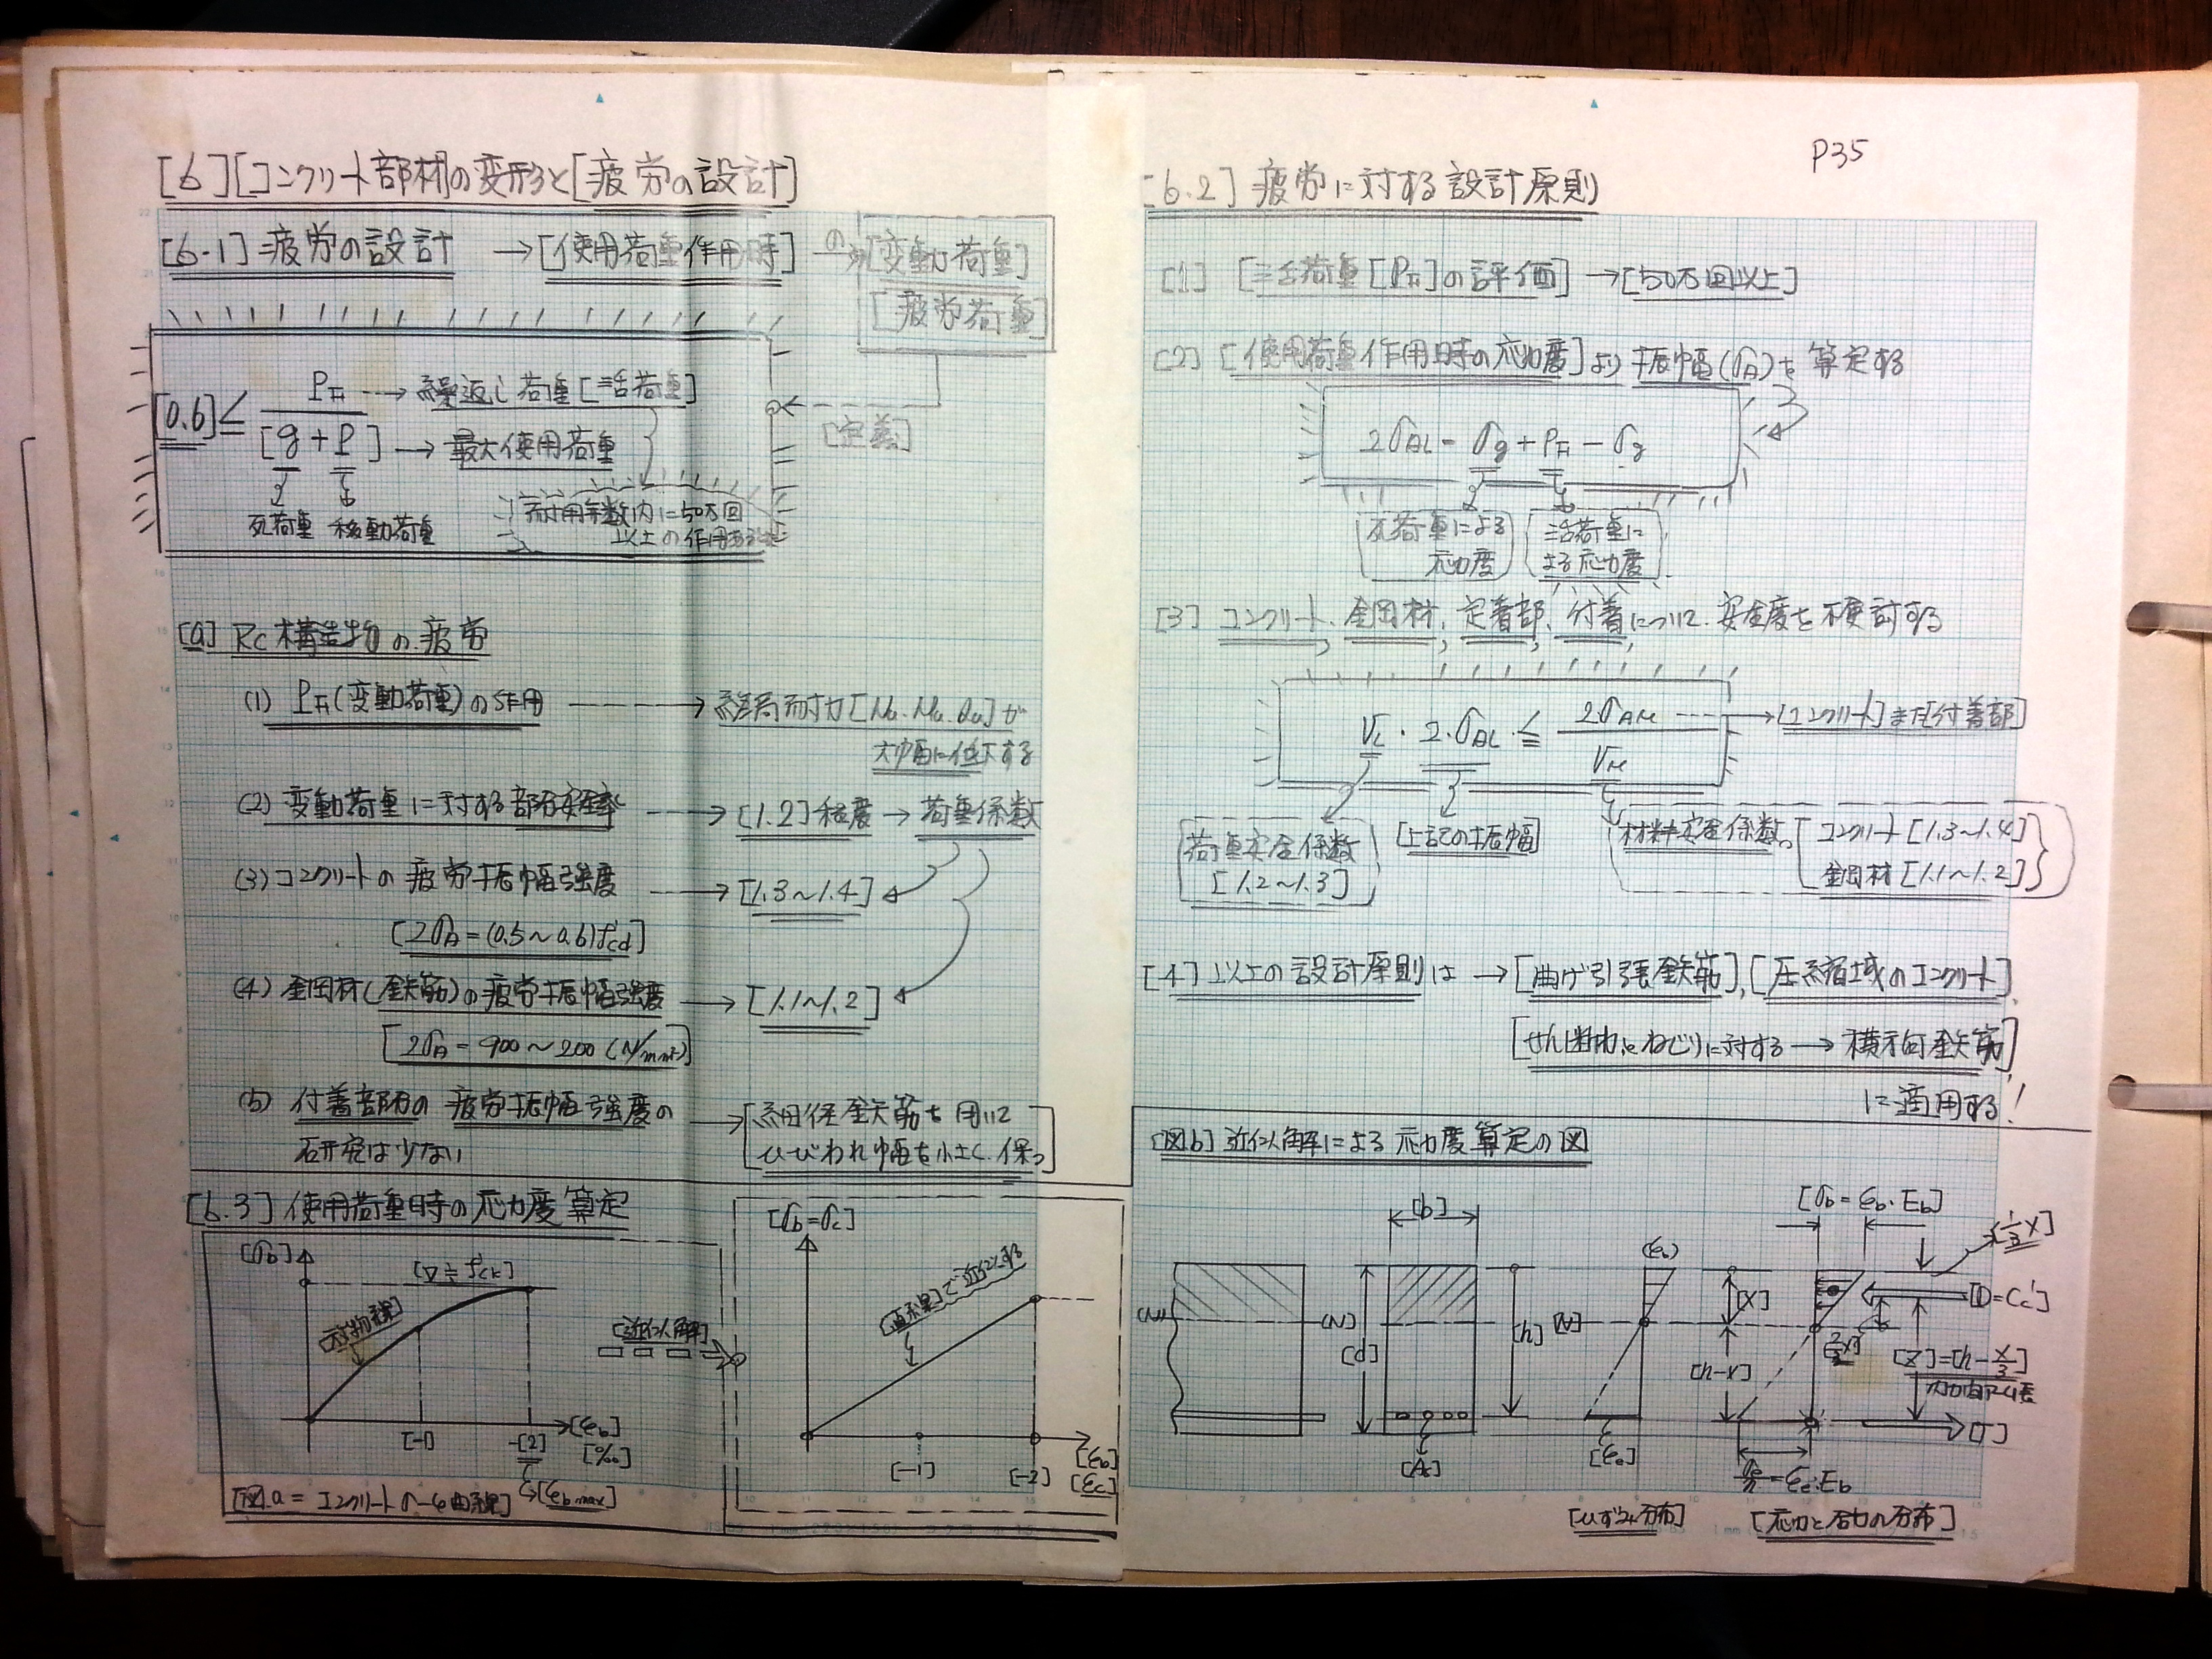 P35
[6][コンクリート部材の変形と[疲労の設計]
[6.1]疲労の設計 →[使用荷重作用時] の→[変動荷重]
[疲労荷重]
[0.6]≦ Pェ / [g+P]
→繰返し荷重[活荷重]
→最大使用荷重
[定義]
死荷重 移動荷重
耐用年数内に50万回
以上の作用
[a] RC構造物の疲労
(1) (変動荷重)の作用 → 終局耐力[Nu.Mu.Qu]が
大幅に低下する
(2) 変動荷重に対する部分安全率 →[1.2]程度→荷重係数
(3)コンクリートの疲労振幅強度 →[1.3~1.4]
[2σA=(0.5~0.6)f'cd]
(4) 金岡材(鉄筋)の疲労振幅強度 →[1.1~1.2]
[2σA= 900~200 (N/mm²)]
(5) 付着部分の疲労振幅強度の
研究は少ない
→[細径鉄筋を用いて
ひびわれ幅を小さく保つ]
[6.3]使用荷重時の応力度算定
[σb]
[放物線]
[-1]
-[2]
[εb]
[‰]
[εb max]
[図.a=コンクリートσ-ε曲線]
[近似解]
[σb=σc]
[直線]で近似する
[-1]
[-2]
[εb]
[εc]
[6.2]疲労に対する設計原則
[1] の評価]→[50万回以上]
[2] [使用荷重作用時の応力度]より振幅(σA)を算定する
死荷重による
応力度
活荷重に
よる応力度
[3] コンクリート、金岡材、定着部、付着について安全度を検討する
→[コンクリート]また[付着部]
荷重安全係数
[1.2~1.3]
[上記の振幅]
材料安全係数
コンクリート[1.3~1.4]
金岡材[1.1~1.2]
[4]以上の設計原則は→[曲げ引張鉄筋],[圧縮域のコンクリート]
[せん断力とねじりに対する→横方向鉄筋]
に適用する!
[図b]近似解による応力度算定の図
[σb=εb・Eb]
[b]
(N)
[d]
[h]
(εb)
[N]
[x]
[h-x]
[1/3 x]
[D=Cc']
[2/3 x]
[z]=[h-x/3]
[T]
[ひずみ分布]
[応力と合力の分布]